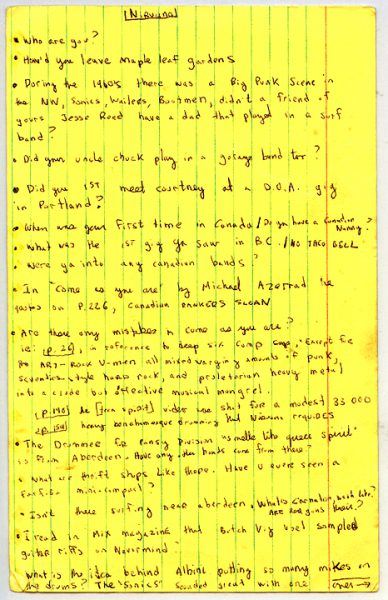 Nirvana
• Who are you?
• How'd you leave Maple leaf gardens
• During the 1960's there was a Big Punk Scene in
the NW, Sonics, Wailers, Bootmen, didn't a friend of
yours Jesse Reed have a dad that played in a surf
band?
• Did your uncle chuck play in a garage band too?
• Did you 1ST meet courtney at a D.O.A. gig
in Portland?
• When was your first time in Canada/Do you have a Canadian Nanny?
• What was the 1st gig ya saw in B.C./NO TACO BELL
• Were ya into any canadian bands?
• In "Come as you are" by Michael Azerrad he
quotes on P.226, Canadian
• Are there any mistakes in come as you are?
ie: P.26, in reference to deep six comp says, "Except for
the ART-Rock U-men all mixed varying amounts of punk,
seventies-style hard rock, and proletarian heavy metal
into a crude but effective musical mongrel.
P.190 he [teen spirit] video was shot for a modest 33 000
heavy drumming that Nirvana requires
• The Drummer for Pansy Division "smells like queer spirit"
is from Aberdeen. Have any other bands come from there?
• What are thrift shops like there. Have U ever seen a
mini-compact?
• Isn't there surfing near aberdeen, Whales
Are there?
• I read in Mix magazine that Butch Vig used sampled
guitar riffs on Nevermind?
What is the idea behind Albini putting so many mikes on
the drums? The "Sonics" sounded great with one over →